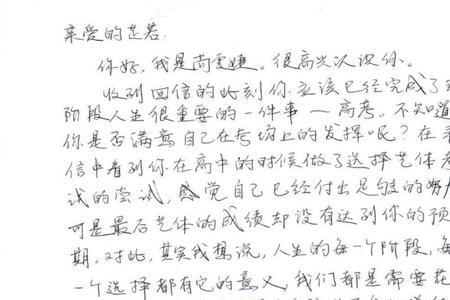 亲爱的芷若:
你好,我是尚雯婕。很高兴认识你。
收到回信的此刻你应该已经完成了
阶段人生很重要的一件事—高考。不知道
你是否满意自己在考场上的发挥呢?在
信中看到你在高中的时候做了选择艺体考
试的尝试,感觉自己已经付出足够的努力
可是最后艺体的成绩却没有达到你的预
期。对此,其实我想说,人生的每一个阶段,每
一个选择都有它的意义,我们都是需要花